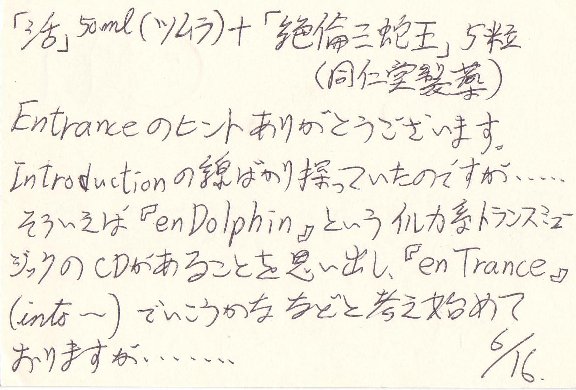 「活」50ml(ツムラ)+「絶倫三蛇王」5粒
(同仁堂製薬)
Entranceのヒントありがとうございます。
Introductionの線ばかり探っていたのですが……
そういえば『enDolphin』というイルカ系トランスミュー
ジックのCDがあることを思い出し、『enTrance』
(into〜)でいこうかななどと考え始めて
おりますが………
6/16.